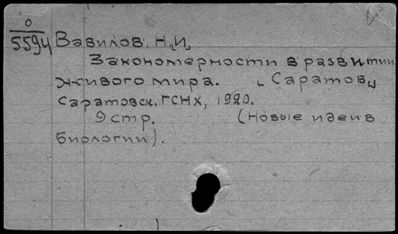 0
5594 Вавилов, Н.[И.]
Закономерности в развитии
живого мира. [Саратов,]
Саратовск. ГСНХ, 1920.
9 стр. (Новые идеи в
биологии).